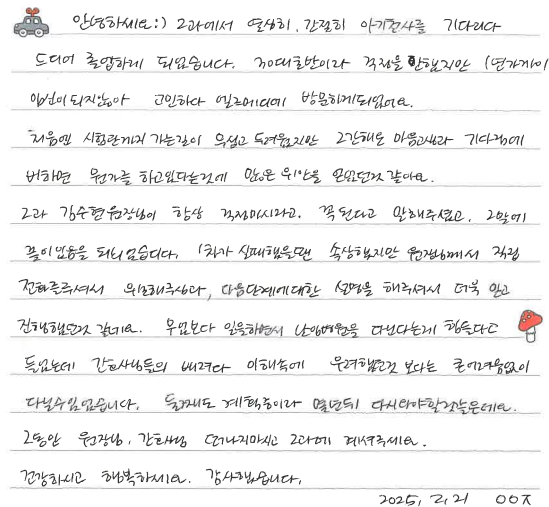 안녕하세요:) 2과에서 열심히, 간절히 아기천사를 기다리다
드디어 졸업하게 되었습니다. 30대초반이라 걱정을 안했지만 1년가까이
임신이 되지않아 고민하다 엘르메디에 방문하게되었어요.
처음엔 시험관까지 가는길이 무섭고 두려웠지만 2간해온 마음고생과 기다림에
비하면 뭔가를 하고있다는것에 많은 위안을 얻었던것 같아요.
2과 김수현원장님이 항상 걱정마시라고. 꼭 된다고 말해주셨고, 그말에
큰힘이 되었습니다. 1차가 실패했을땐 속상했지만 원장님께서 직접
전화를주셔서 위로해주심과, 다음단계에대한 설명을 해주셔서 더욱 믿고
진행했던것 같네요. 무엇보다 일을하면서 난임병원을 다닌다는게 힘들다고
들었는데 간호사님들의 배려와 이해속에 우려했던것 보다는 큰어려움없이
다닐수있었습니다. 둘째도 계획중이라 몇년뒤 다시와야할것같은데요.
그동안 원장님, 간호사님 떠나지마시고 2과에 계셔주세요.
건강하시고 행복하세요. 감사했습니다.
2025. 2. 21 OOX